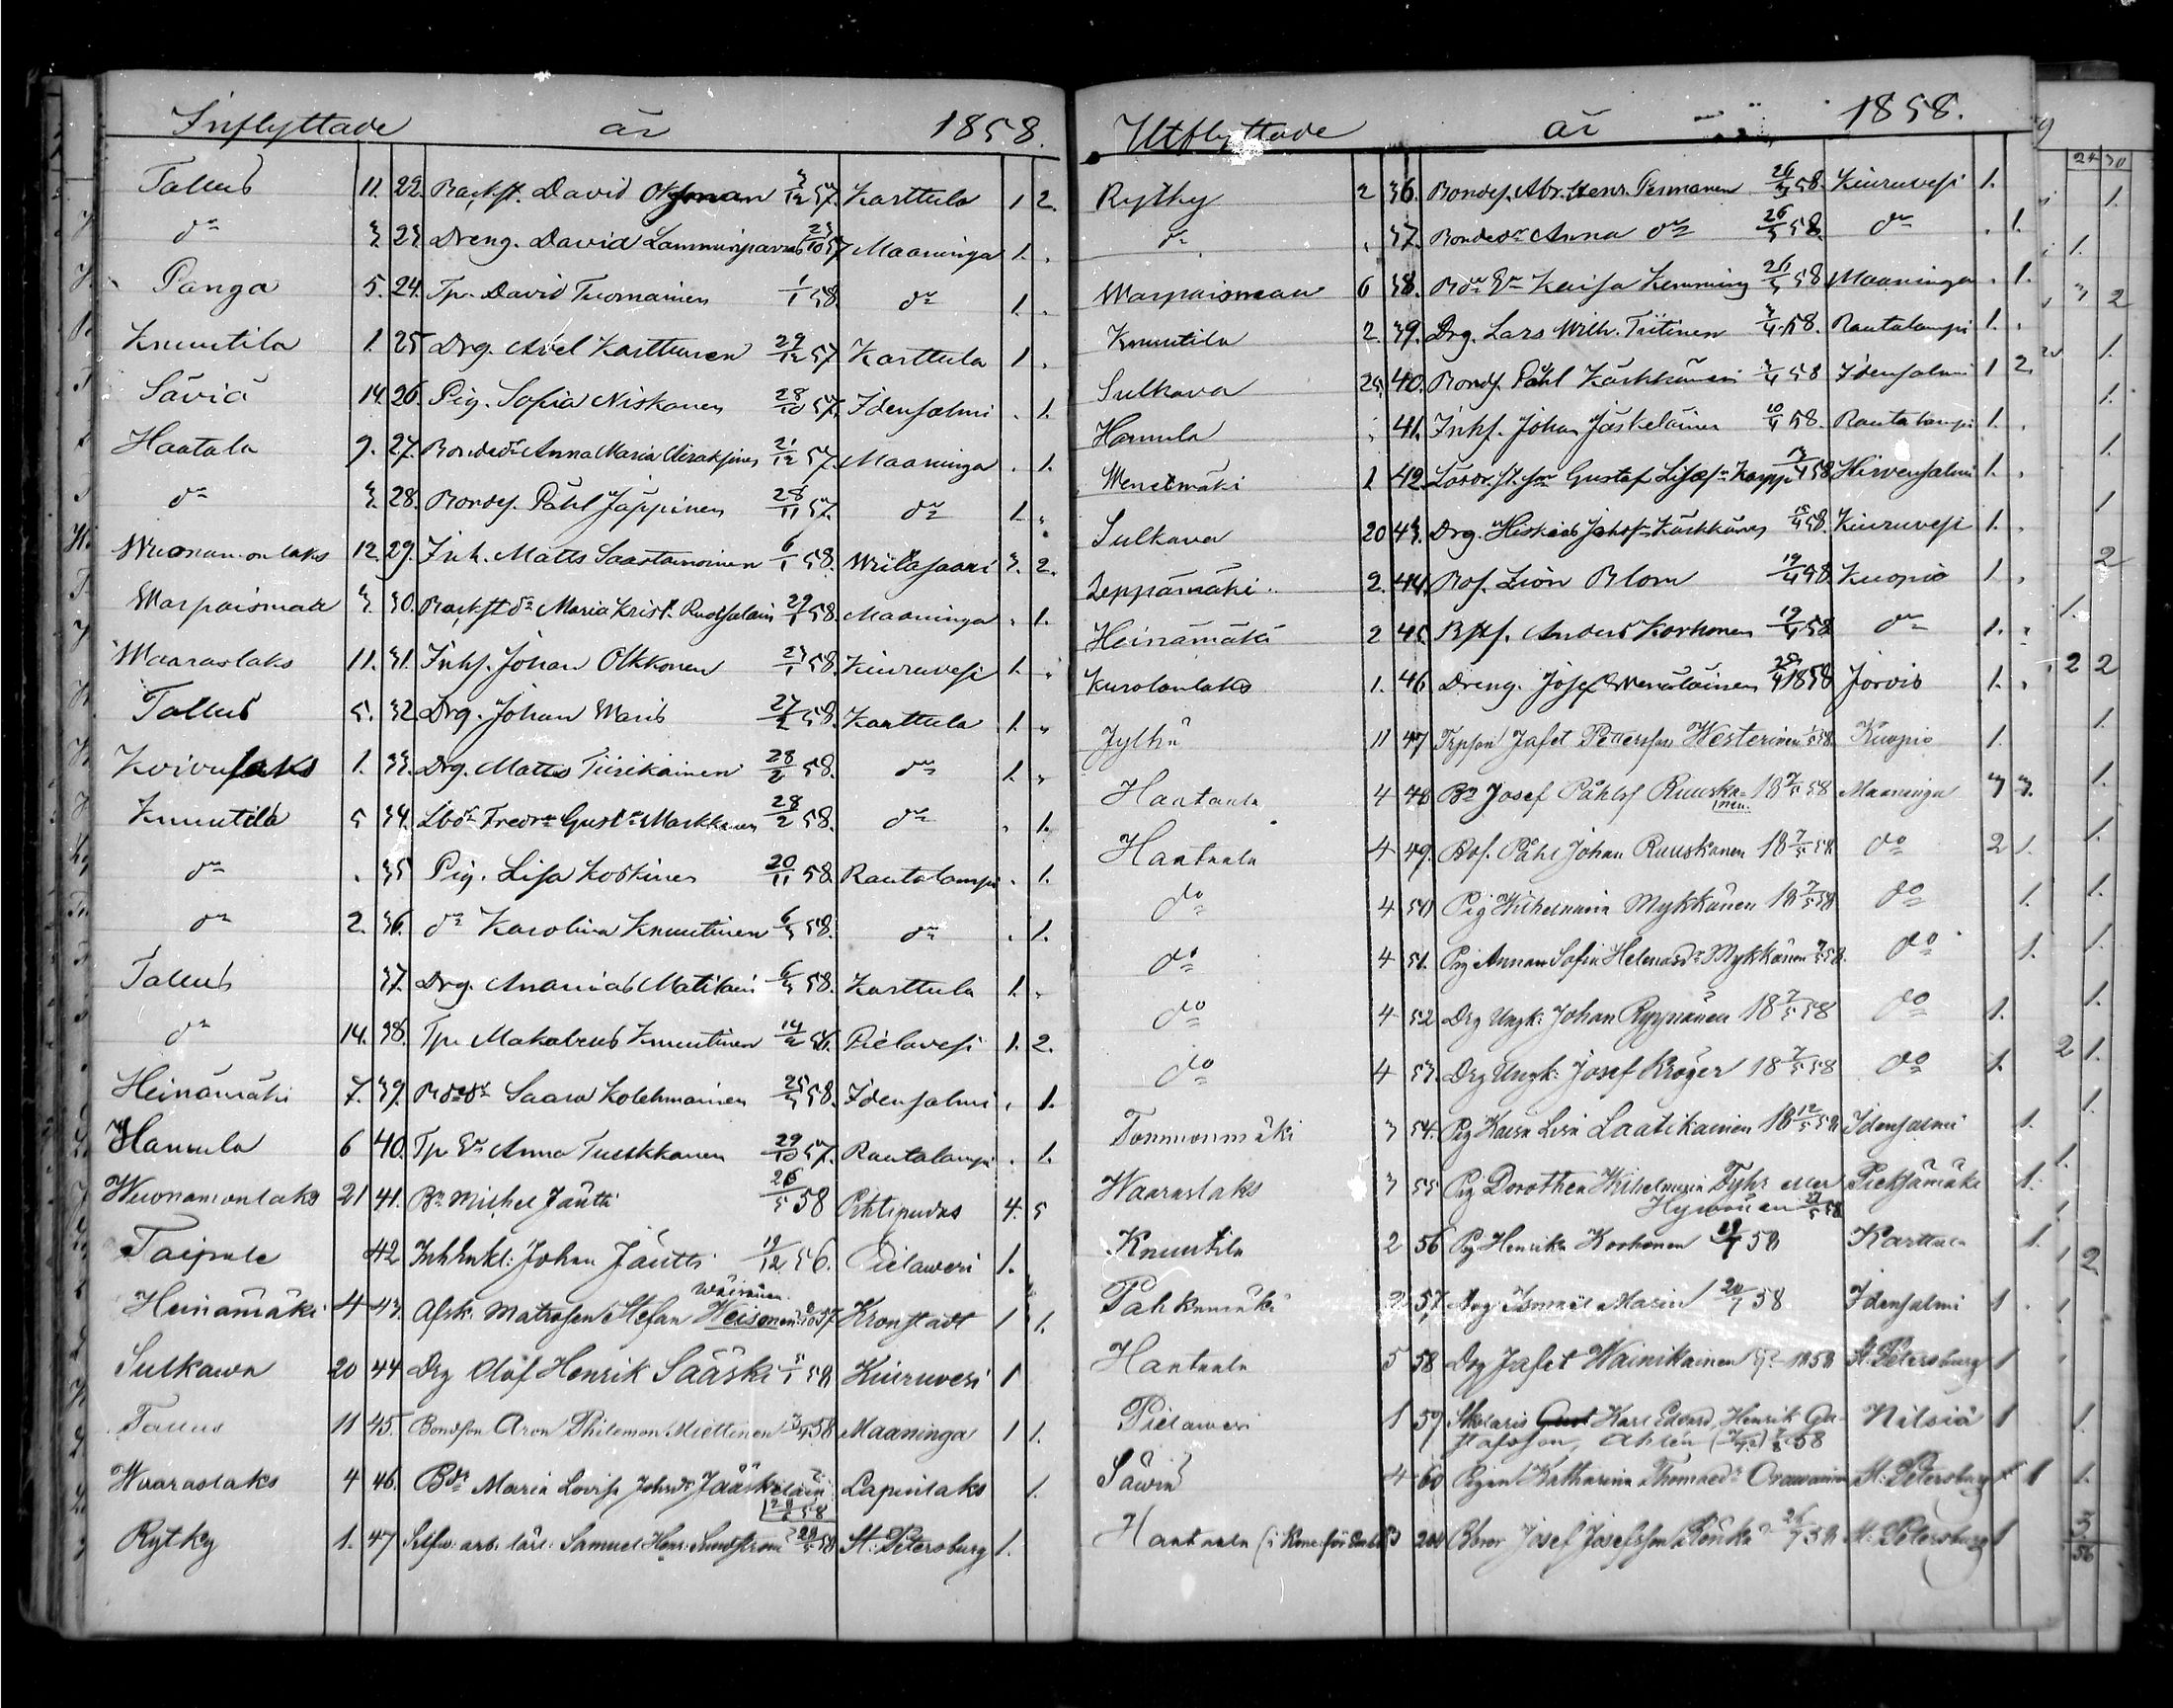 Inflyttade år 1858.
Tallus 11. 22. Backst. David Oksman 3/12 57. Karttula 1 2.
do 3 23 Dreng. David Lamminparras 23/10 57 Maaninga 1.
Panga 5. 24. Tp. David Tuomainen 1/1 58 do 1.
Knuutila 1. 25 Drg. Axel Karttunen 29/12 57 Karttula 1.
Säviä 14. 26. Pig. Sofia Niskanen 28/10 57. Idensalmi . 1.
Haatala 9. 27. Bondedr Anna Maria 21/12 57. Maaninga . 1.
do 3. 28. Bondes. Påhl Jäppinen 28/11 57. do 1.
Wuonamonlaks 12. 29. Inh. Matts Saastamoinen 6/1 58. Wiitasaari 3. 2.
Warpaismaa 3 30. Backst dr Maria Krist. 29/1 58. Maaninga . 1.
Waaraslaks 11. 31. Inhs. Johan Olkkonen 23/1 58. Kiuruvesi 1.
Tallus 5. 32. Drg. Johan Maris 27/2 58. Karttula 1.
Koivujaks 1. 33. Drg. Matts Tiirikainen 28/2 58. do 1.
Knuutila 5 34. Lbdr Fredr. Gustr Markkanen 28/2 58. do . 1.
do . 35 Pig. Lisa Koskinen 20/11 58. Rautalampi . 1.
do 2. 36. do Karolina Knuutinen 6/3 58. do . 1.
Tallus 37. Drg. Ananias Matilain 6/3 58. Karttula 1.
do 14. 38. Tp. Makabeus Knuutinen 14/2 56. Pielavesi 1. 2.
Heinämäki 7. 39. Bdedr Saara Kolehmainen 25/3 58. Idensalmi . 1.
Hamula 6 40. Tp Er Anna Tuskkanen 29/10 57. Rautalampi . 1.
Wuonamonlaks 21 41. Bn Michel Jäntti 26/5 58 Pihtipudas 4. 5
Taipale 42 Inh Enkl: Johan Jäntti 19/12 56. Pielawesi 1.
Heinämäki 4 43. Afsk: Matrosen Stefan Weisonen Wäisänen 57. Kronstadt 1 1.
Sulkawa 20 44 Drg Olof Henrik Sääski 5/1 58 Kiuruvesi 1
Tallus 11 45. Bondson Aron Philemon Miettinen 58 Maaninga 1 1.
Waaraslaks 4 46. Bdr Maria Lovisa Johsdr Jääskeläin 28/2 58 Lapinlaks 1.
Rytky 1. 47 arb. lärl. Samuel Henr. Sundstrom 29/5 58 St. Petersburg 1.
Utflyttade år 1858.
Rytky 2 36. Bondes. Abr. Henr. Permanen 26/3 58. Kiuruvesi 1.
do . 37. Bondedr Anna do 26/3 58. do . 1.
Warpaismaa 6 38. Kaisa Kemming 26/3 58 Maaninga . 1.
Knuutila 2. 39. Drg. Lars Wilh. Tiitinen 3/4 58. Rautalampi 1.
Sulkava 25. 40. Bonds. Påhl Kärkkäinen 3/4 58 Idensalmi 1 2.
Hamula 41. Inhs. Johan Jäskeläinen 10/4 58. Rautalampi 1.
Wenetmäki 1 42. Gustaf 13/4 58 Hirvensalmi 1.
Sulkava 20 43. Drg. Hiskias Johss. Kärkkäinen 15/4 58. Kiuruvesi 1.
Leppämäki 2. 44. Bos. Zion Blom 19/4 58. Kuopio 1.
Heinämäki 2 45. Bps. Anders Korhonen 19/4 58 do 1.
Kurolanlaks 1. 46 Dreng. Josef Wenäläinen 28/4 1858 Jorois 1.
Jylhä 11 47 Tpson Jafet Pettersson Westerinen 58. Kuopio 1.
Haataala 4 48 Bn Josef Påhls Ruuskainen. 18 7/5 58 Maaninga 3 3.
Haataala 4 49. Bos. Påhl Johan Ruuskanen 18 7/5 58 do 2 1.
do 4 50 Pig Wilhelmina Mykkänen 18 7/5 58 do 1.
do 4 51. Pig Anna Sofia Helenasdr Mykkänen 58. do 1.
do 4 52 Drg Ungk: Johan Ryynänen 18 7/5 58 do 1.
do 4 53. Drg Ungk: Josef Kröger 18 7/5 58 do 1.
Tommonmäki 3 54. Pig Kaisa Lisa Laatikainen 18 12/5 58 Idensalmi 1.
Waaraslaks 3 55 Pig Dorothea Wilhelmina Fyhr eller Pieksämäki 1.
Hywönen 58
Knuutila 2 56 Pig Henrika Korhonen 58 Karttula 1.
Pahkamäki 2 57 Drg Ismael Marin 20/7 58 Idensalmi 1
Haataala 5 58 Drg Jafet Wainikainen 1858 St. Petersburg 1
Pielawesi 1 59 Skolaris Karl Edvard, Henrik Gu- Nilsiä 1
stafsson, Ahlén 58
Säwiä 4 60 Pigan Katharina Thomaedr Orawainen St: Petersburg 1
Haataala 201 Josef Josefsson 26/7 58 St. Petersburg 1